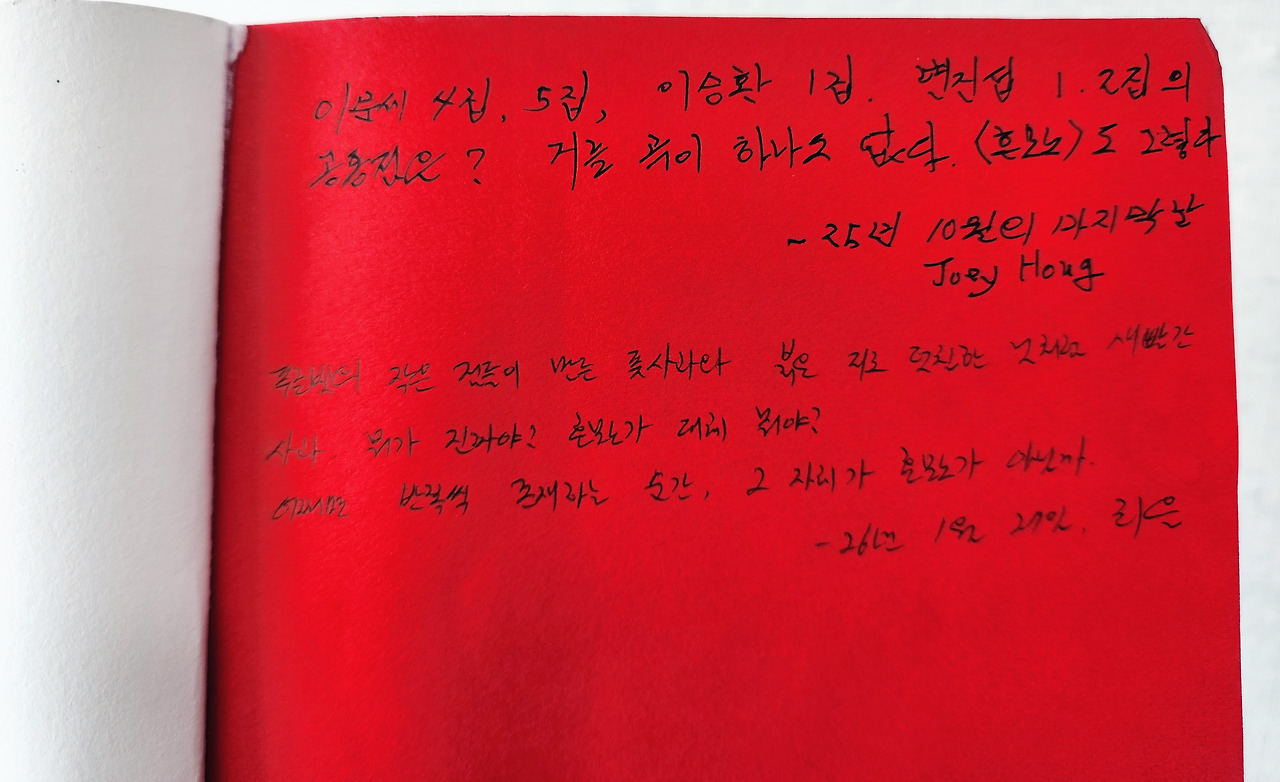 이문세 4집, 5집, 이승환 1집. 변진섭 1. 2집의
공통점은? 거를 곡이 하나도 없다. <혼모노>도 그렇다
~ 25년 10월의 마지막 날
Joey Hong
작은 점들이 만든 풋사과와 붉은 저로 덧칠한 새빨간
사과. 뭐가 진짜야? 혼모노가 대체 뭐야?
어쩌면 반쪽씩 존재하는 순간, 그 자리가 혼모노가 아닌가.
- 26년 1월 27일, 리은